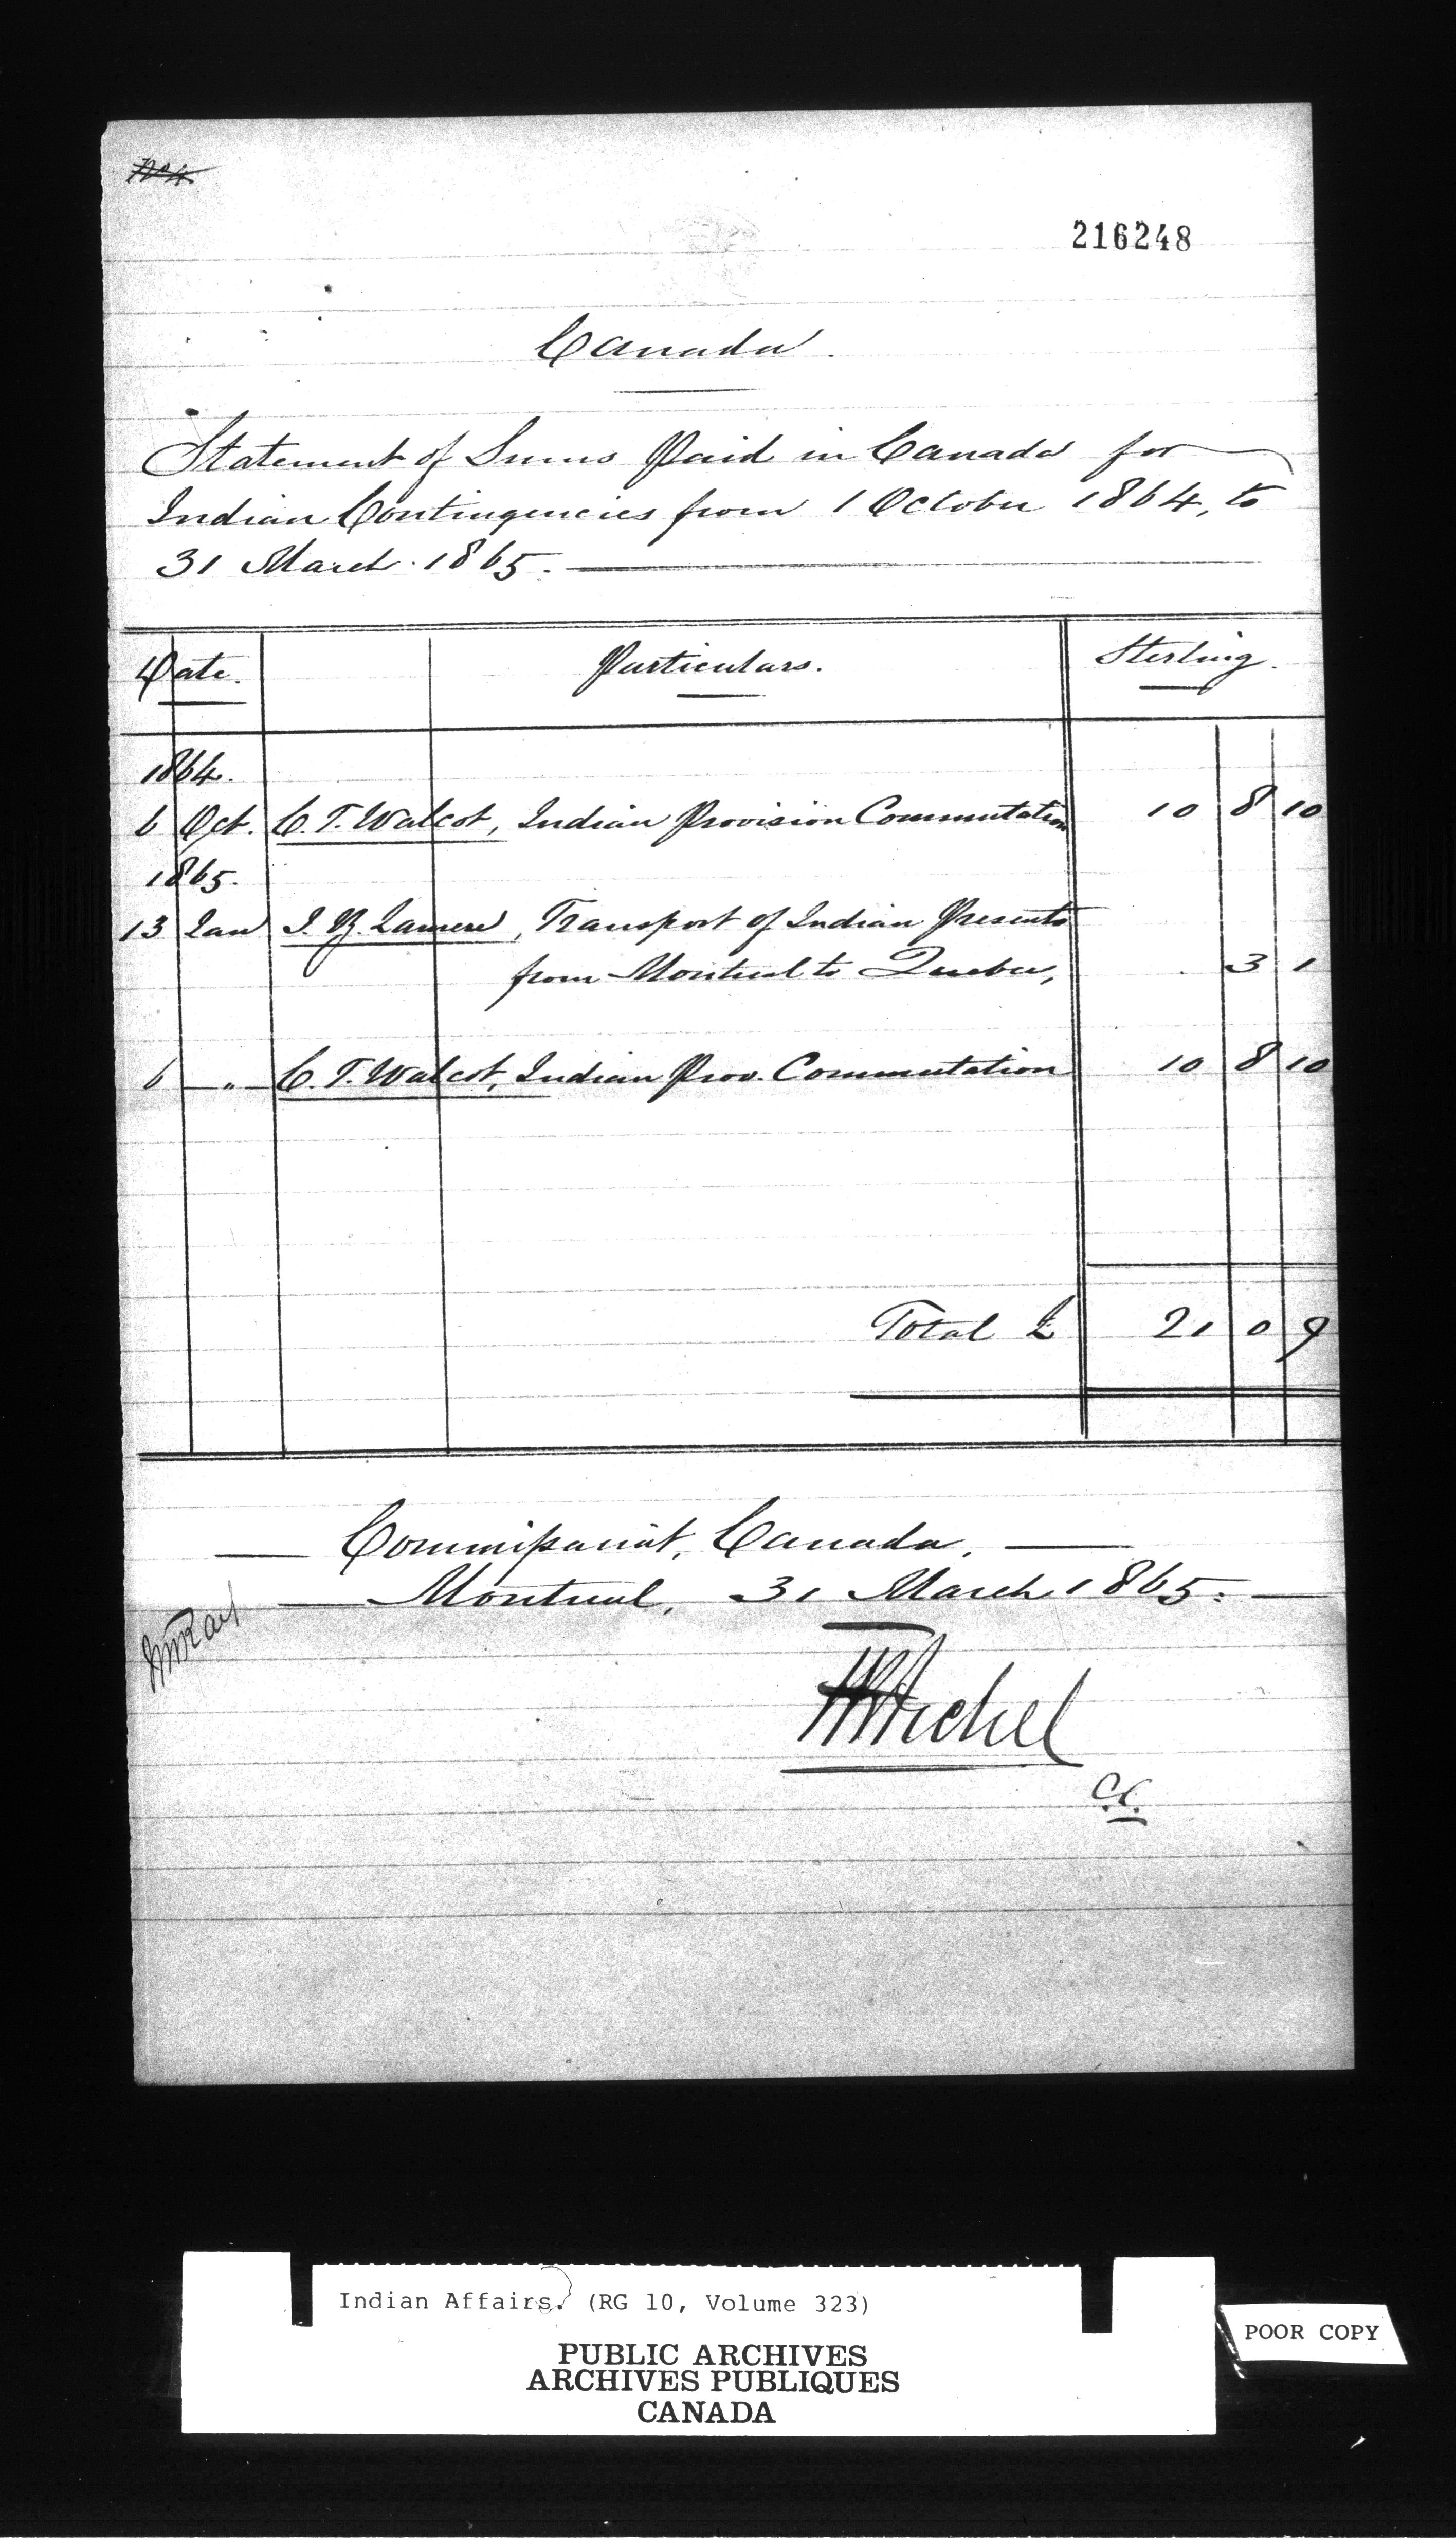 216248
Canada.
Statement of Sums Paid in Canada for
Indian Contingencies from 1 October 1864, to
31 March 1865.
Date. Particulars. Sterling.
1864.
6 Oct. C. T. Walcot, Indian Provision Commutation 10 8 10
1865.
13 Jan Transport of Indian Presents
from Montreal to Quebec, 3 1
6 — " — C. T. Walcot, Indian Prov. Commutation 10 8 10
Total £ 21 0 9
Commissariat, Canada.
Montreal, 31 March 1865.
Indian Affairs. (RG 10, Volume 323)
PUBLIC ARCHIVES
ARCHIVES PUBLIQUES
CANADA
POOR COPY